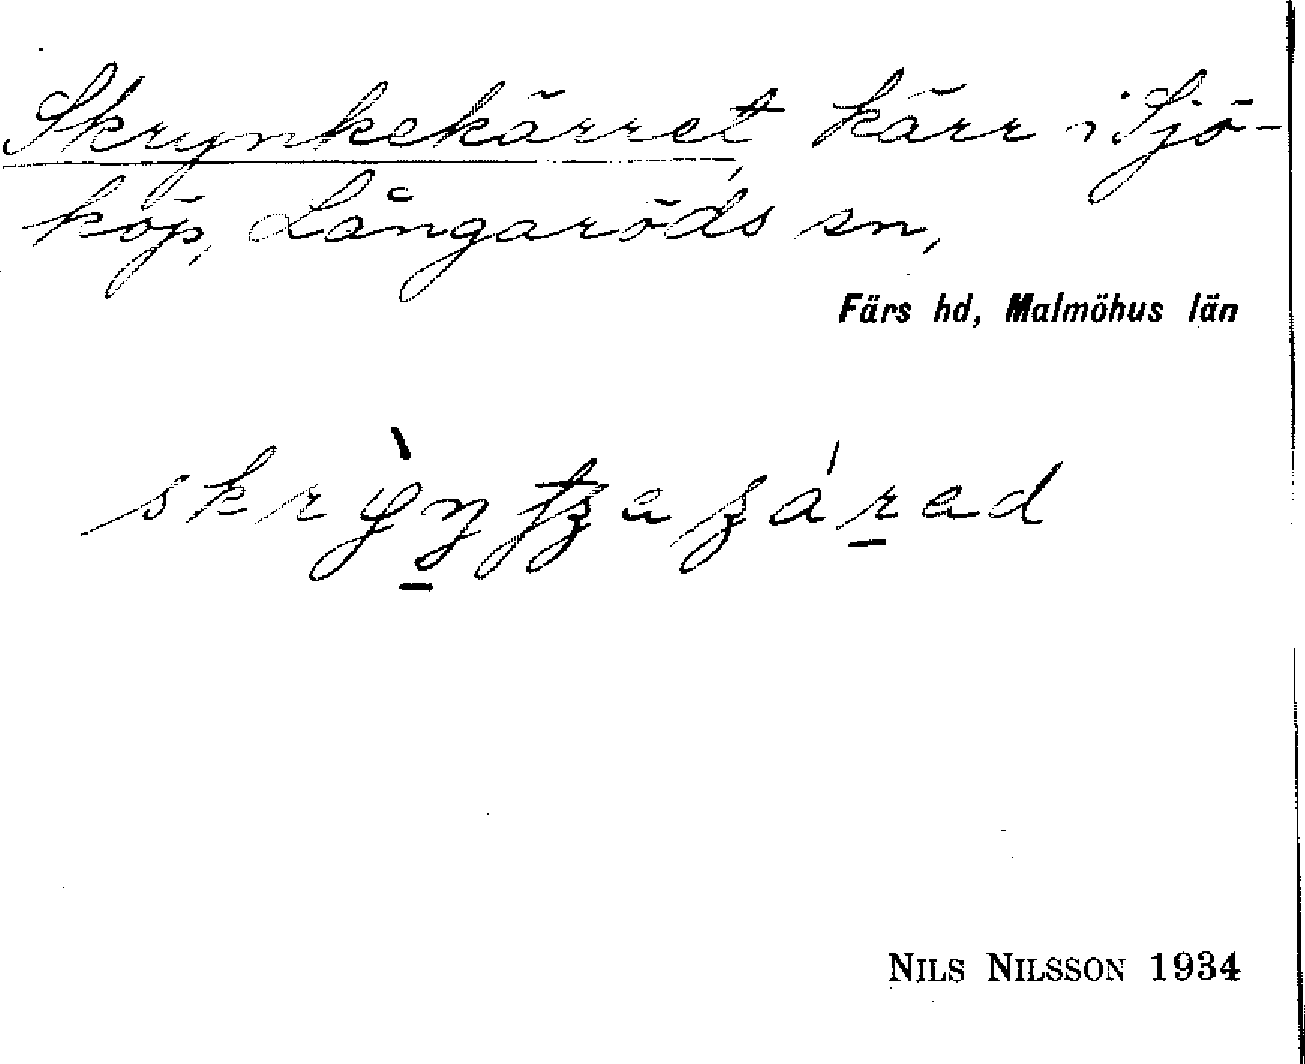 Skrynkekärret kärr i Sjö-
köp, Långaröds sn,
Färs hd, Malmöhus län
NILS NILSSON 1934